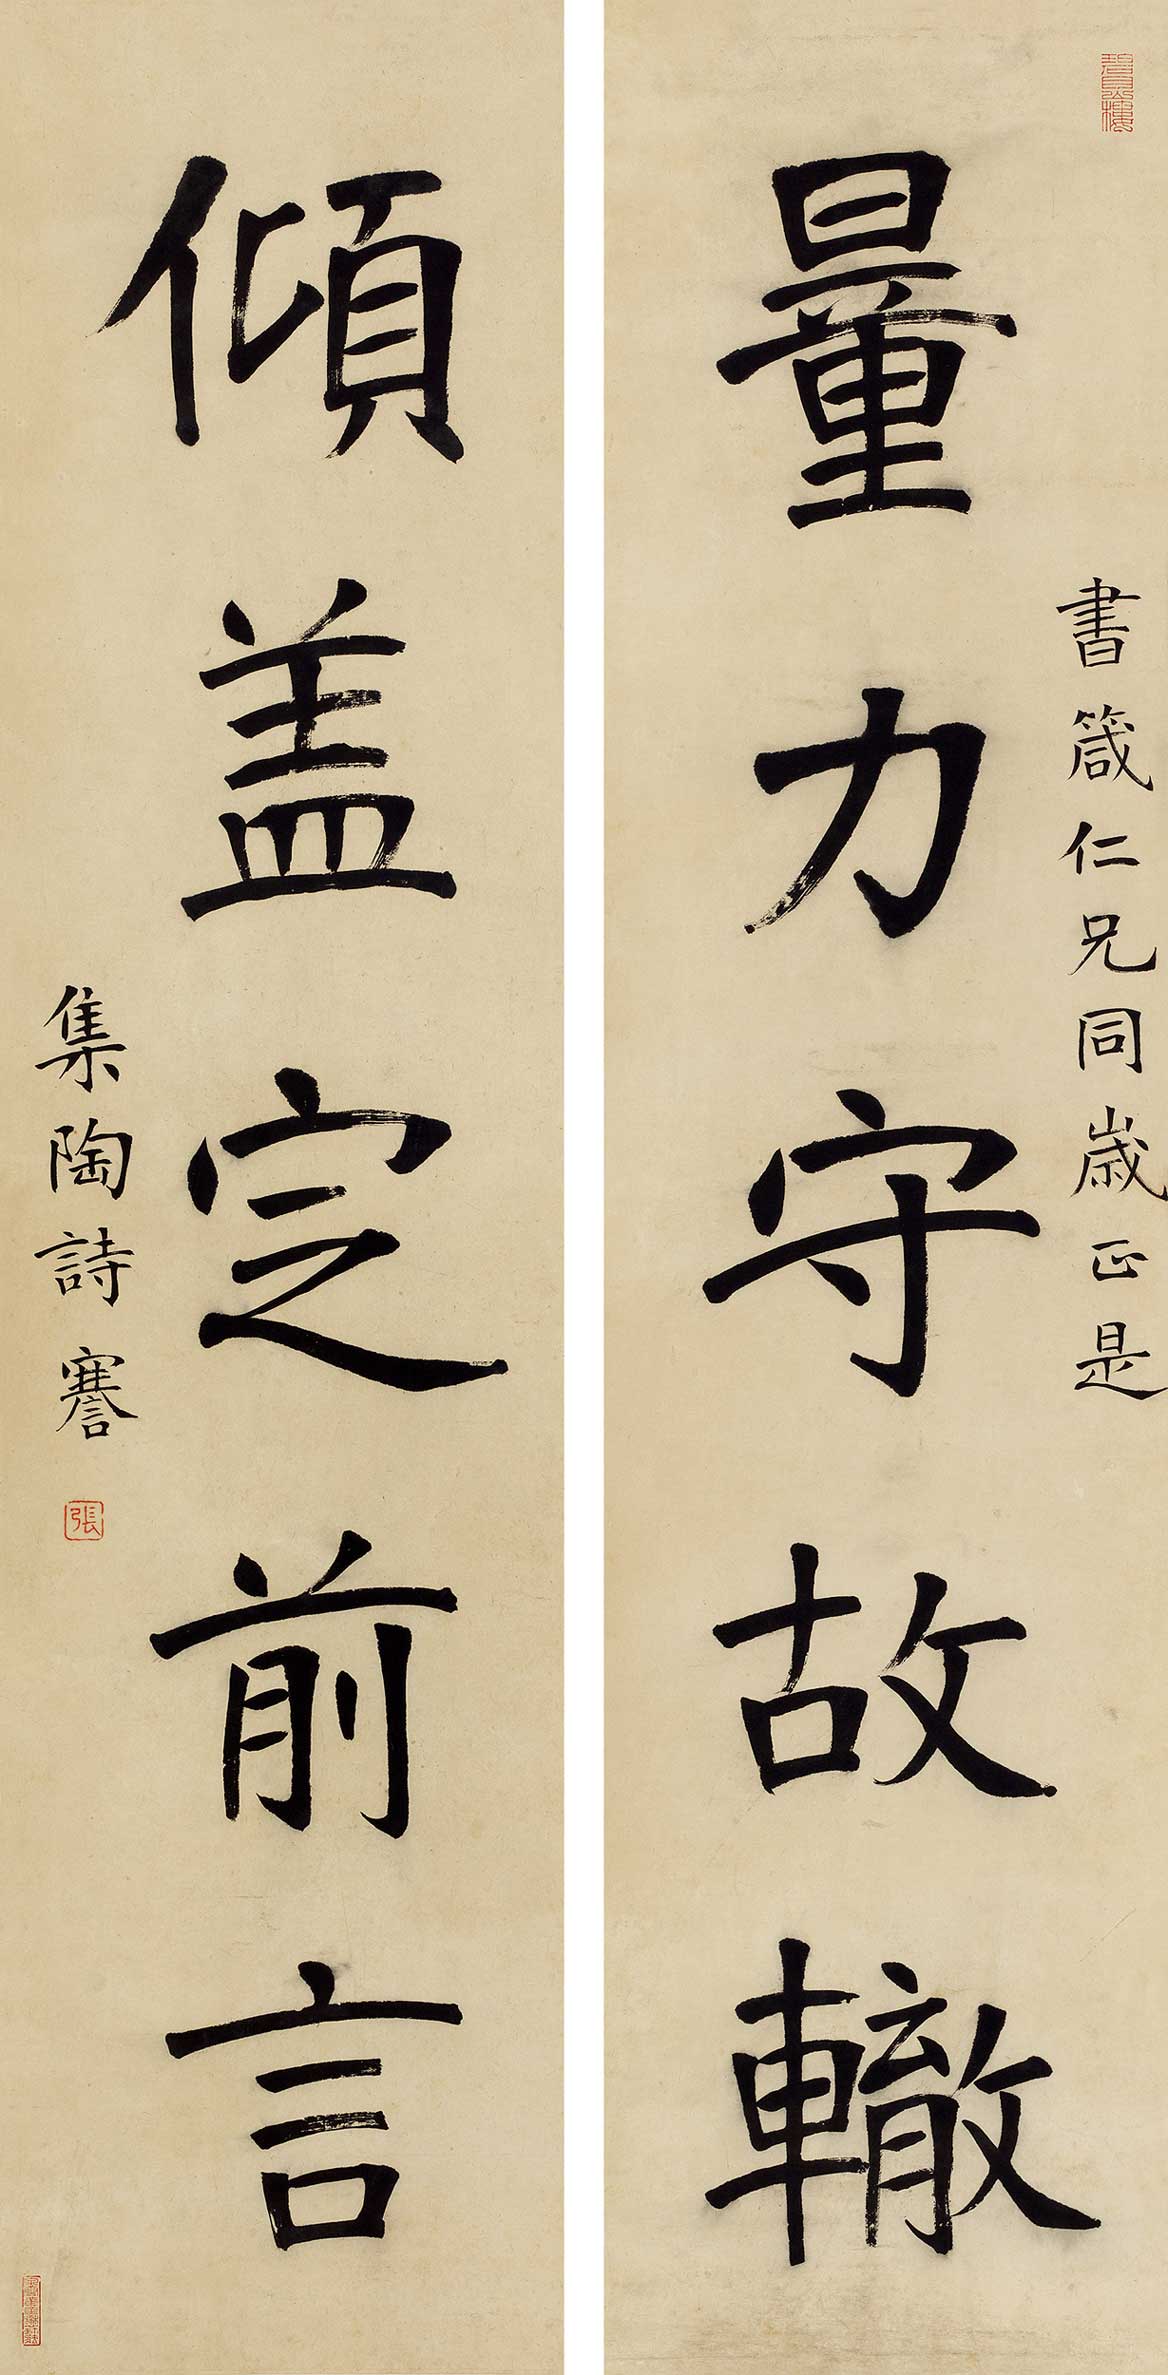 書箴仁兄同歲正是
量力守故轍
傾盖定前言
集陶詩謇
張